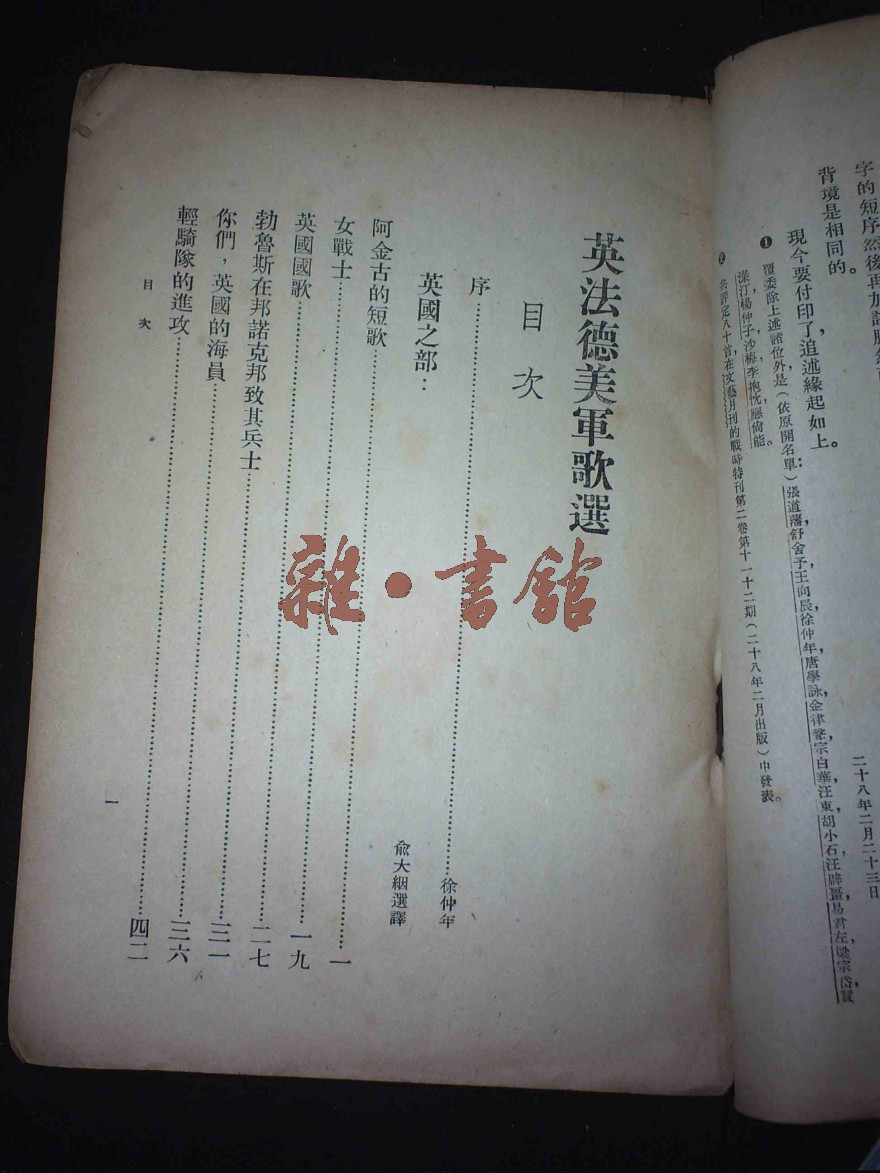 字的短序然後再加
背境是相同的。
現今要付印了,追述緣起如上。
二十八年二月二十三日
❶ 覆委除上述諸位外是(依原開名單:)張道藩,舒舍予,王向辰,徐仲年,唐學詠,金律聲,宗白華,汪東,胡小石,汪辟畺,易君左,梁宗岱,賀
淥汀,楊仲子,沙梅,李抱忱,應尚能。
❷ 共評定八十首,在文藝月刊的戰時特刊第二卷第十一十二期(二十八年二月出版)中發表。
英法德美軍歌選
目次
序……徐仲年
英國之部: 俞大絪選譯
阿金古的短歌……一
女戰士……一九
英國國歌……二七
勃魯斯在邦諾克邦致其兵士……三一
你們,英國的海員……三六
輕騎隊的進攻……四二
目次
一
雜·書館